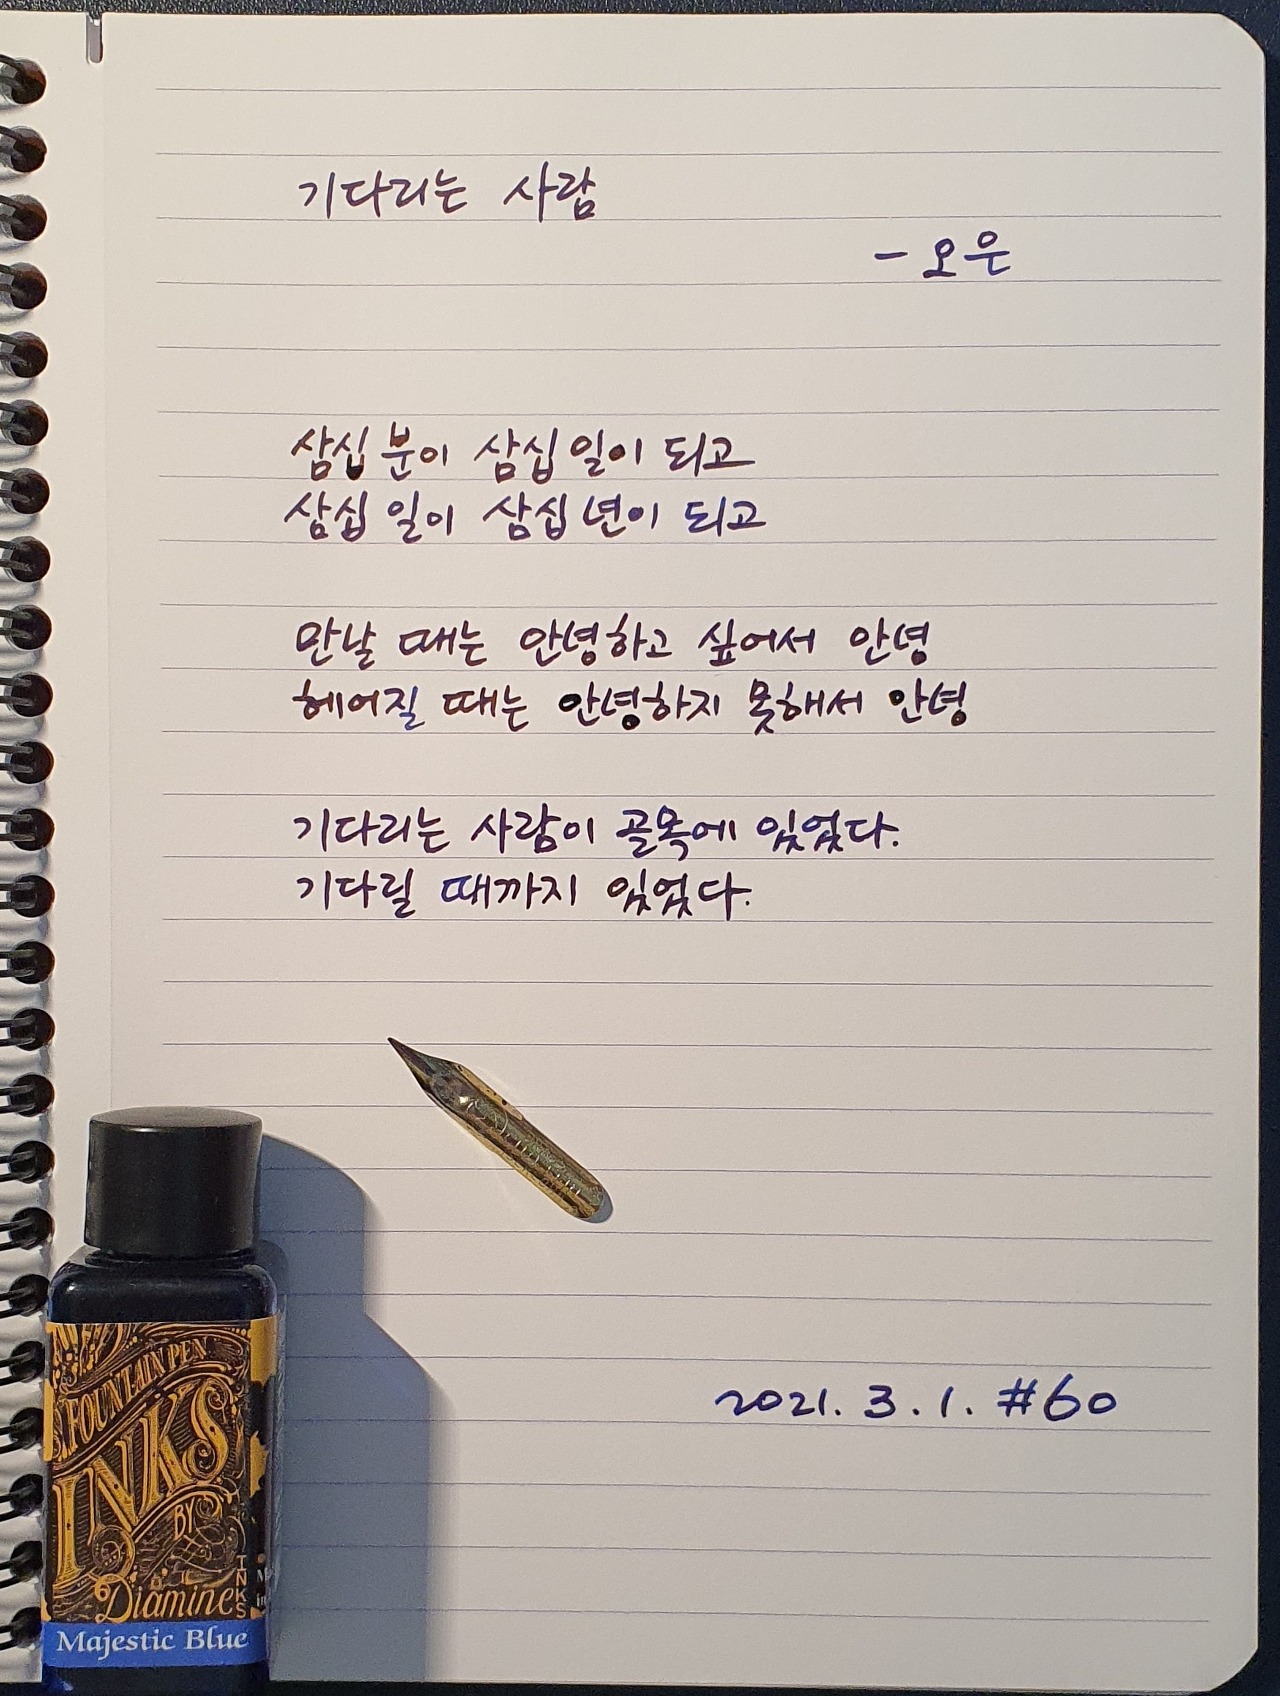 기다리는 사람
- 오은
삼십분이 삼십일이 되고
삼십일이 삼십년이 되고
만날 때는 안녕하고 싶어서 안녕
헤어질 때는 안녕하지 못해서 안녕
기다리는 사람이 골목에 있었다.
기다릴 때까지 있었다.
2021. 3. 1. #60
FOUNTAIN PEN
INKS
BY
Diamine
INKS
Majestic Blue